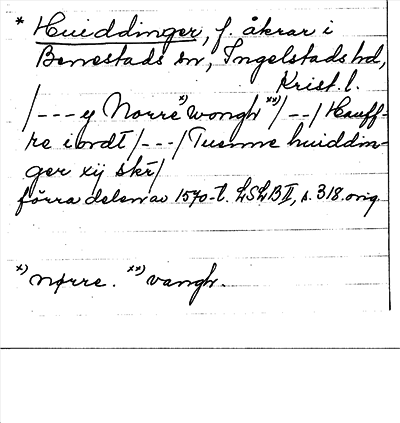 * Huiddinger, f. åkrar i
Benestads sn, Ingelstads hd,
Krist. l.
/---y Norre x) wongh xx)/--/ Hauff-
re i ordt /---/ Tuenne huiddin-
ger xij skr/
förra delen av 1570-t. LSLB II, s. 318. orig.
x) nørre. xx) vangh.